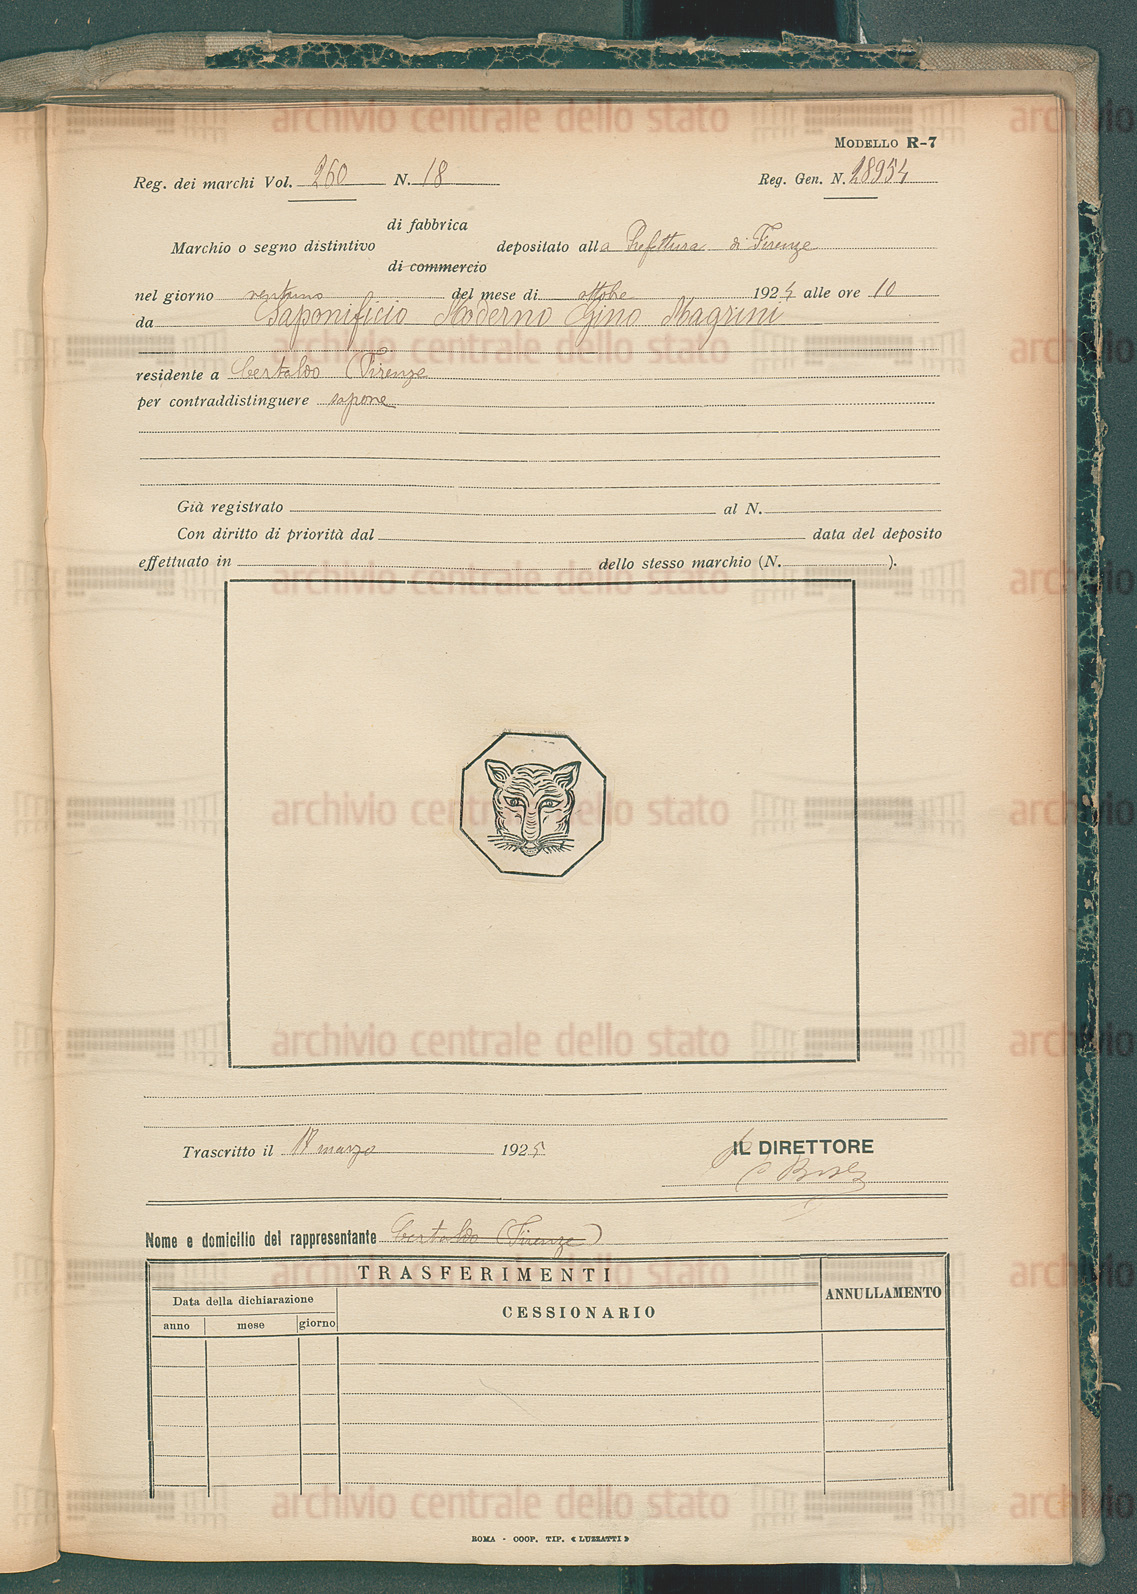 MODELLO R-7
Reg. dei marchi Vol. 260 N. 18 Reg. Gen. N. 28954
di fabbrica
Marchio o segno distintivo depositato alla Prefettura di Firenze
di commercio
nel giorno ventuno del mese di ottobre 1924 alle ore 10
da Saponificio Moderno Gino Magrini
residente a Certaldo (Firenze
per contraddistinguere sapone
Già registrato al N.
Con diritto di priorità dal data del deposito
effettuato in dello stesso marchio (N. ).
Trascritto il marzo 1925 IL DIRETTORE
Nome e domicilio del rappresentante Certaldo (Firenze)
TRASFERIMENTI
ANNULLAMENTO
Data della dichiarazione
CESSIONARIO
anno mese giorno
ROMA - COOP. TIP. « LUZZATTI »
archivio centrale dello stato